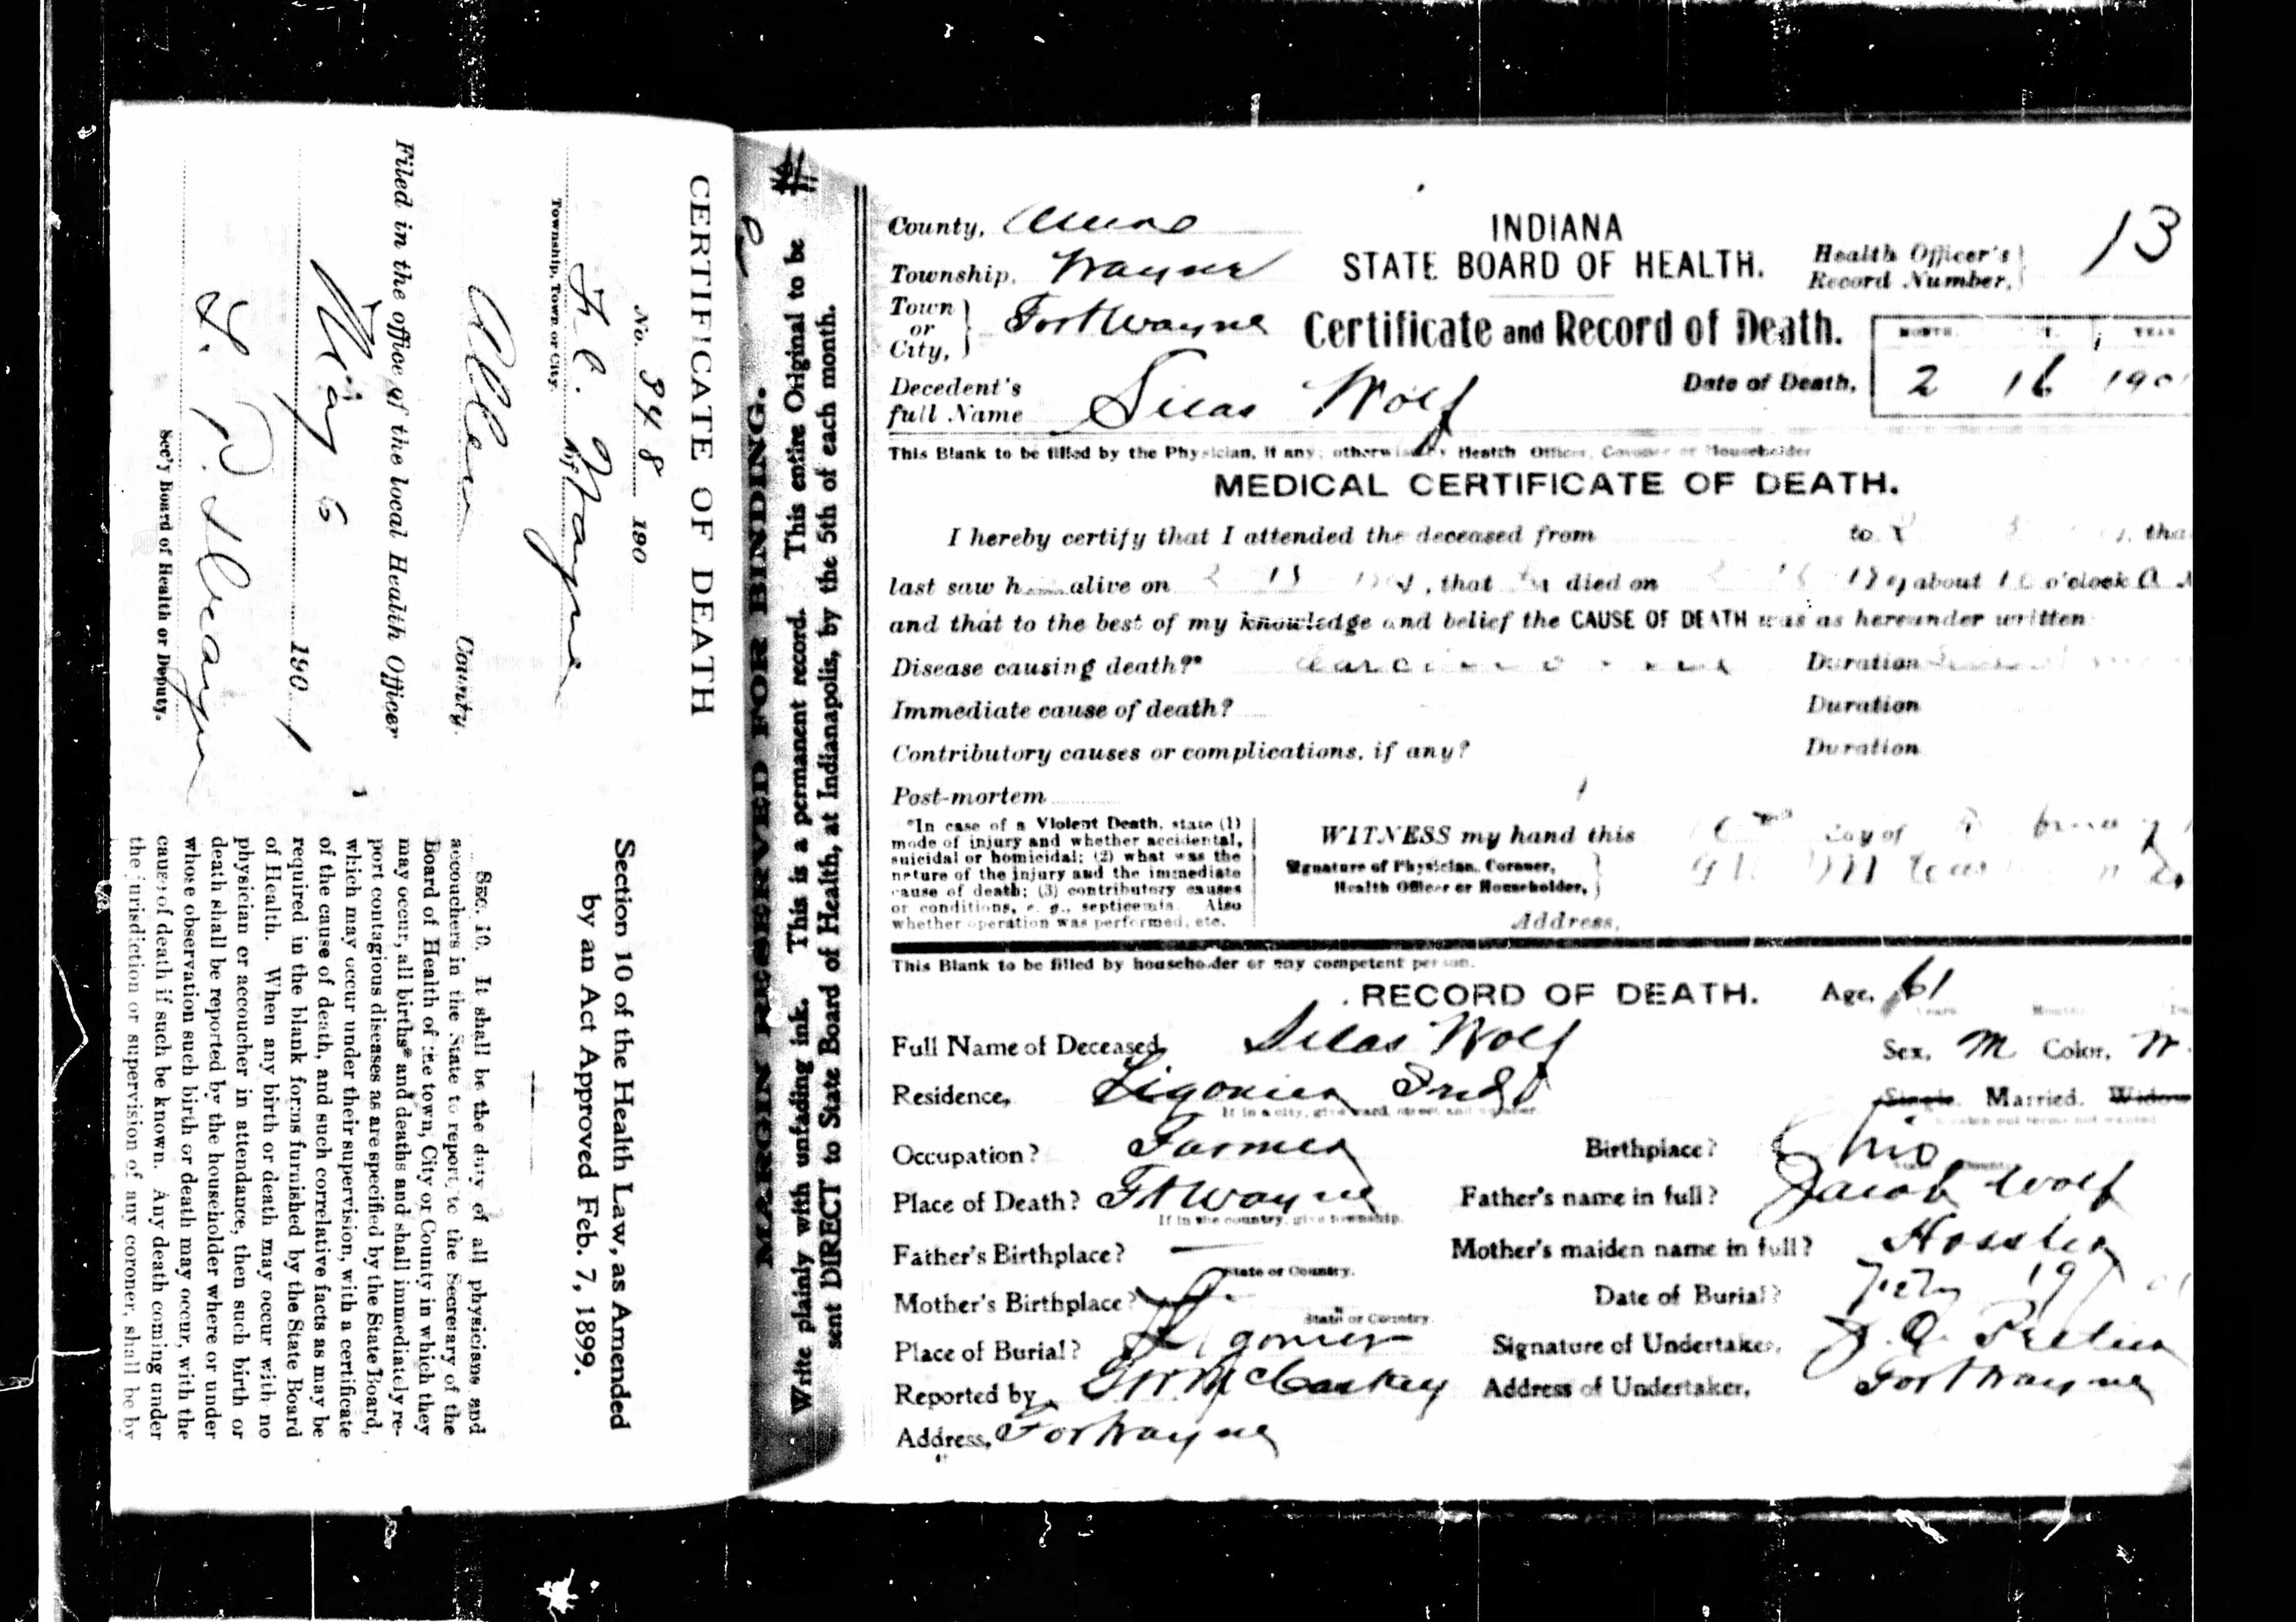 CERTIFICATE OF DEATH
No. 348 190
Ft. Wayne
Township, Town or City.
Allen County.
Filed in the office of the local Health Officer
May 6 1901
Sec'y Board of Health or Deputy.
Section 10 of the Health Law, as Amended
by an Act Approved Feb. 7, 1899.
SEC. 10. It shall be the duty of all physicians and
accouchers in the State to report to the Secretary of the
Board of Health of the town, City or County in which they
may occur, all births* and deaths and shall immediately re-
port contagious diseases as are specified by the State Board,
which may occur under their supervision, with a certificate
of the cause of death, and such correlative facts as may be
required in the blank forms furnished by the State Board
of Health. When any birth or death may occur with no
physician or accoucher in attendance, then such birth or
death shall be reported by the householder where or under
whose observation such birth or death may occur, with the
cause of death if such be known. Any death coming under
the jurisdiction or supervision of any coroner, shall be by
MARGIN RESERVED FOR BINDING.
Write plainly with unfading ink. This is a permanent record. This entire Original to be
sent DIRECT to State Board of Health, at Indianapolis, by the 5th of each month.
INDIANA
STATE BOARD OF HEALTH.
Certificate and Record of Death.
County, Allen
Township, Wayne
Town or City, Fort Wayne
Health Officer's Record Number, 13
MONTH. YEAR
Date of Death, 2 16 190
Decedent's full Name Silas Wolf
This Blank to be filled by the Physician, if any; otherwise by Health Officer, Coroner or Householder
MEDICAL CERTIFICATE OF DEATH.
I hereby certify that I attended the deceased from to
last saw h alive on 2 15, that died on 16 about 10 o'clock A
and that to the best of my knowledge and belief the CAUSE OF DEATH was as hereunder written
Disease causing death?* Duration
Immediate cause of death? Duration
Contributory causes or complications, if any? Duration
Post-mortem
*In case of a Violent Death, state (1)
mode of injury and whether accidental,
suicidal or homicidal; (2) what was the
nature of the injury and the immediate
cause of death; (3) contributory causes
or conditions, e. g., septicemia. Also
whether operation was performed, etc.
WITNESS my hand this day of
Signature of Physician, Coroner,
Health Officer or Householder,
Address,
This Blank to be filled by householder or any competent person.
RECORD OF DEATH. Age, 61
Years Months
Full Name of Deceased, Silas Wolf Sex, M Color, W.
Residence, Ligonier Ind Single. Married. Widow
If in a city, give ward, street, and number.
Occupation? Farmer Birthplace? Ohio
Place of Death? Ft Wayne Father's name in full? Jacob Wolf
If in the country, give township.
Father's Birthplace? — Mother's maiden name in full? Hossler
State or Country.
Mother's Birthplace? Date of Burial? 19
State or Country.
Place of Burial? Ligonier Signature of Undertaker,
Reported by McCaskey Address of Undertaker, Fort Wayne
Address, Fort Wayne